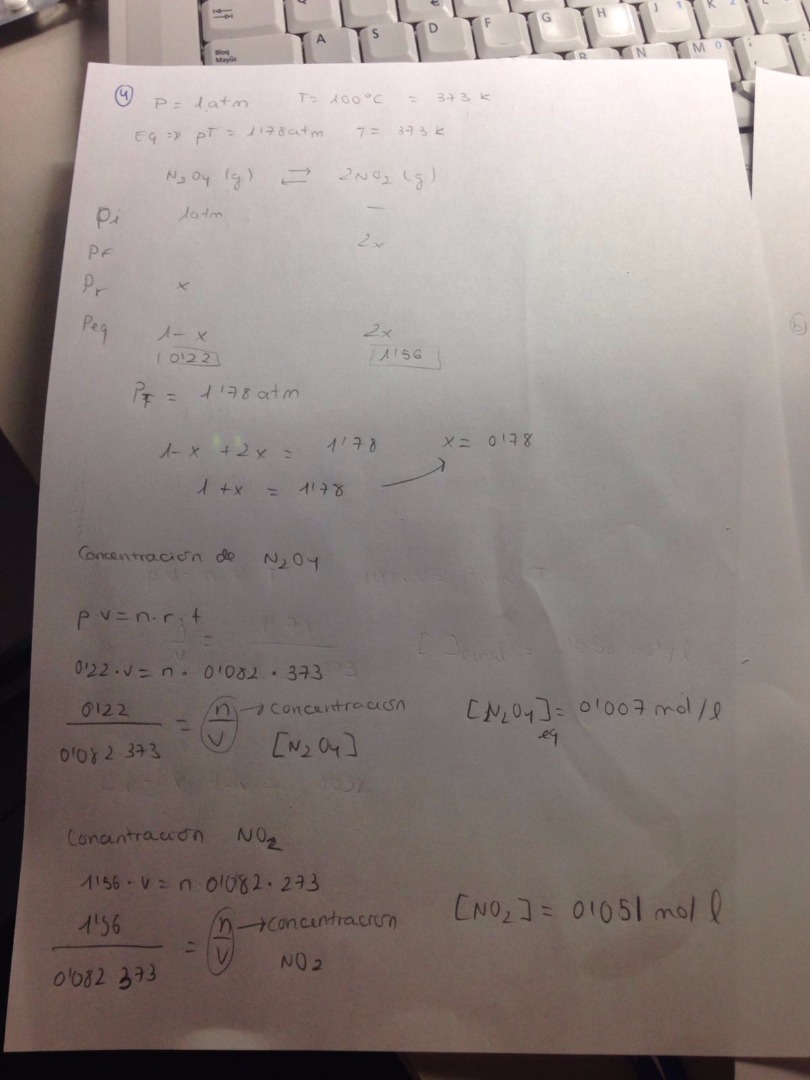 A S D F G H J 1 K 2 L
Bloq Mayús
B N M 0 ; :
4 P = 1 atm T = 100°C = 373 K
Eq => pT = 1'78 atm T = 373 K
N2O4 (g) ⇄ 2NO2 (g)
Pi 1 atm —
PF 2x
Pr x
Peq 1 - x 2x
0'22 1'56
PT = 1'78 atm
1 - x + 2x = 1'78 x = 0'78
1 + x = 1'78
Concentración de N2O4
p v = n · r · t
0'22 · v = n · 0'082 · 373
0'22 / 0'082 373 = n/v → concentración [N2O4] [N2O4]eq = 0'007 mol/l
Concentración NO2
1'56 · v = n · 0'082 · 273
1'56 / 0'082 373 = n/v → concentración NO2 [NO2] = 0'051 mol l
b)